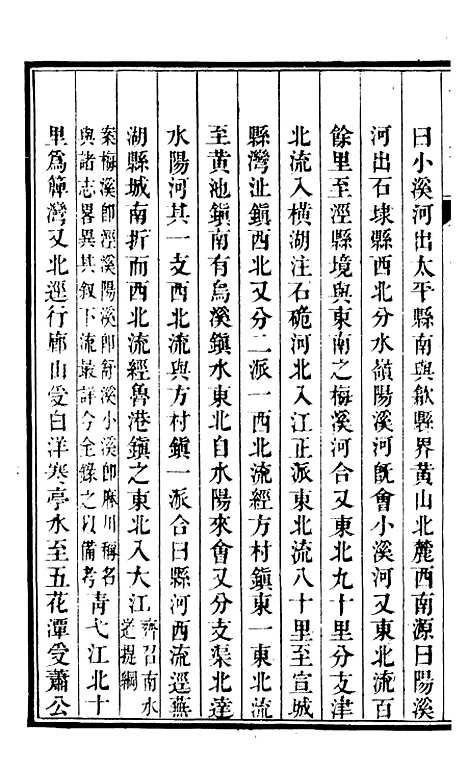 曰小溪河出太平縣南與歙縣界黃山北麓西南源曰陽溪
河出石埭縣西北分水嶺陽溪河旣會小溪河又東北流百
餘里至涇縣境與東南之梅溪河合又東北九十里分支津
北流入橫湖注石硊河北入江正派東北流八十里至宣城
縣灣沚鎭西北又分二派一西北流經方村鎭東一東北流
至黃池鎭南有烏溪鎭水東北自水陽來會又分支渠北達
水陽河其一支西北流與方村鎭一派合曰縣河西流逕蕪
湖縣城南折而西北流經魯港鎭之東北入大江齊召南水道提綱
案梅溪卽涇溪陽溪卽舒溪小溪卽麻川稱名與諸志畧異其叙下流最詳今全錄之以備考靑弋江北十
里爲簰灣又北逕行廊山受白洋寒亭水至五花潭受蕭公